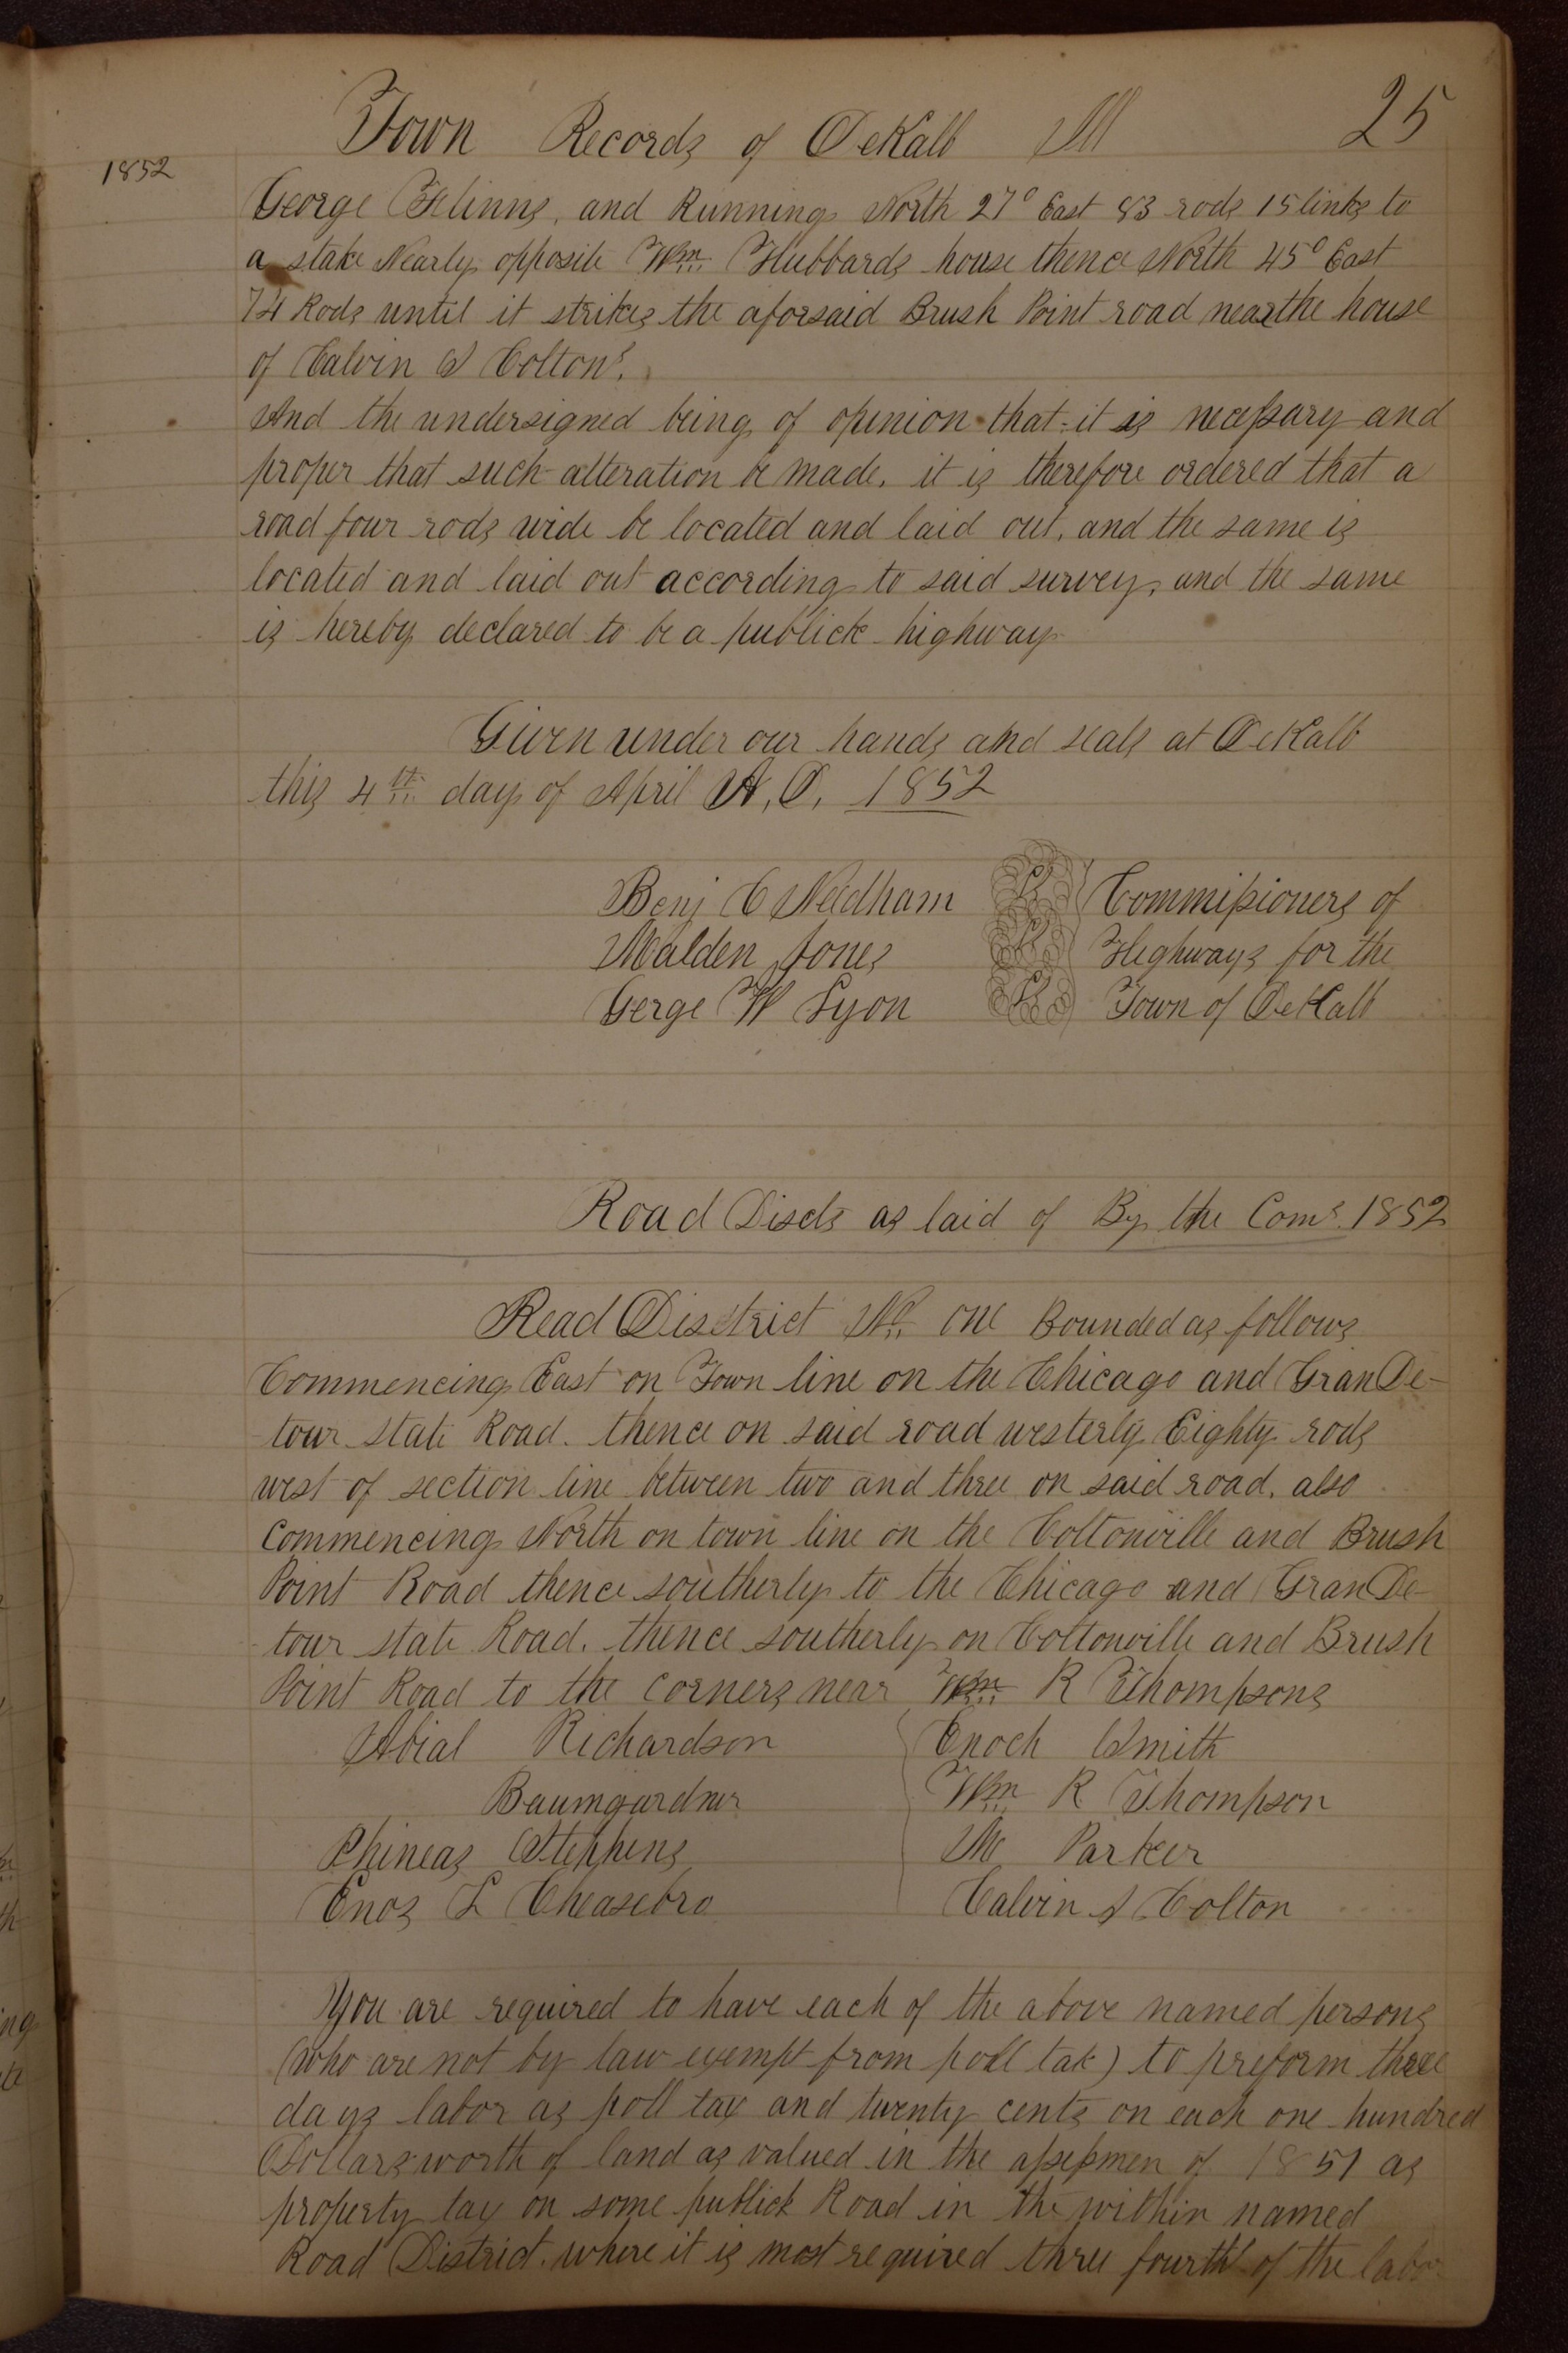 Town Records of DeKalb Ill 25
1852
George Flinns, and Running North 27° East 83 rods 15 links to
a stake Nearly opposite Wm Hubbards house thence North 45° East
74 Rods until it strikes the aforsaid Brush Point road near the house
of Calvin S Coltons.
And the undersigned being of opinion that it is necessary and
proper that such alteration be made. it is therefore ordered that a
road four rods wide be located and laid out, and the same is
located and laid out according to said survey, and the same
is hereby declared to be a publick highway
Given under our hands and seals at DeKalb
this 4th day of April A, D, 1852
Benj C Needham Commissioners of
Malden Jones Highways for the
Gerge W Lyon Town of DeKalb
Road Discts as laid of By the Coms. 1852
Read Disctrict No. one Bounded as follows
Commencing East on Town line on the Chicago and GranDe-
tour state Road. thence on said road westerly Eighty rods
west of section line between two and three on said road, also
Commencing North on town line on the Coltonville and Brush
Point Road thence southerly to the Chicago and GranDe-
tour state Road. thence southerly on Coltonville and Brush
Point Road to the Corners near Wm R Thompsons
Abial Richardson Enoch Smith
Baumgardner Wm R Thompson
Phineas Stephens M Parker
Enos L Cheasebro Calvin S Colton
You are required to have each of the above named persons
(who are not by law exempt from poll tak) to preform three
days labor as poll tax and twenty cents on each one hundred
Dollars worth of land as valued in the assessmen of 1851 as
property tax on some publick Road in the within named
Road District. where it is most required three fourths of the labor